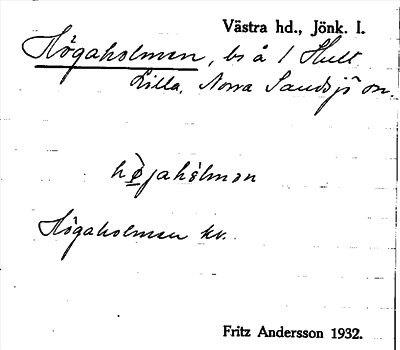 Västra hd., Jönk. l.
Högaholmen, bs å 1 Hult
Lilla, Norra Sandsjö sn.
höjahòlmən
Högaholmen kv.
Fritz Andersson 1932.